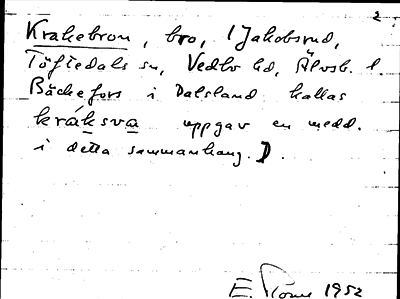 2.
Krakebron, bro, i Jakobsrud,
Töftedals sn, Vedbo hd, Älvsb. l.
Bäckefors i Dalsland kallas
kráksva uppgav en medd.
i detta sammanhang.
E. 1952